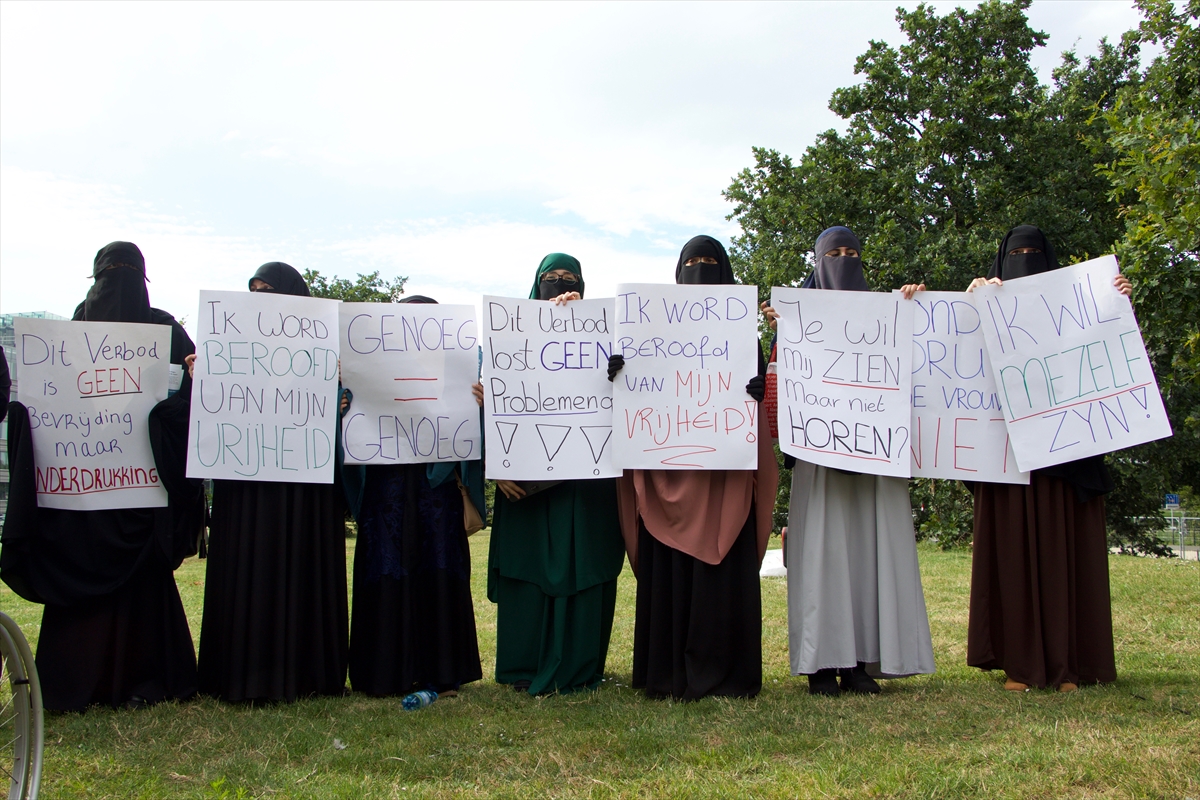 Dit Verbod
is GEEN
Bevrijding
maar
ONDERDRUKKING
IK WORD
BEROOFD
VAN MIJN
VRIJHEID
GENOEG
=
GENOEG
Dit Verbod
lost GEEN
Problemen
!!!
IK WORD
BEROOFd
VAN MIJN
VRIJHEID!
Je wil
mij ZIEN
maar niet
HOREN?
OND
DRU
DE VROUW
NIET
IK WIL
MEZELF
ZYN!